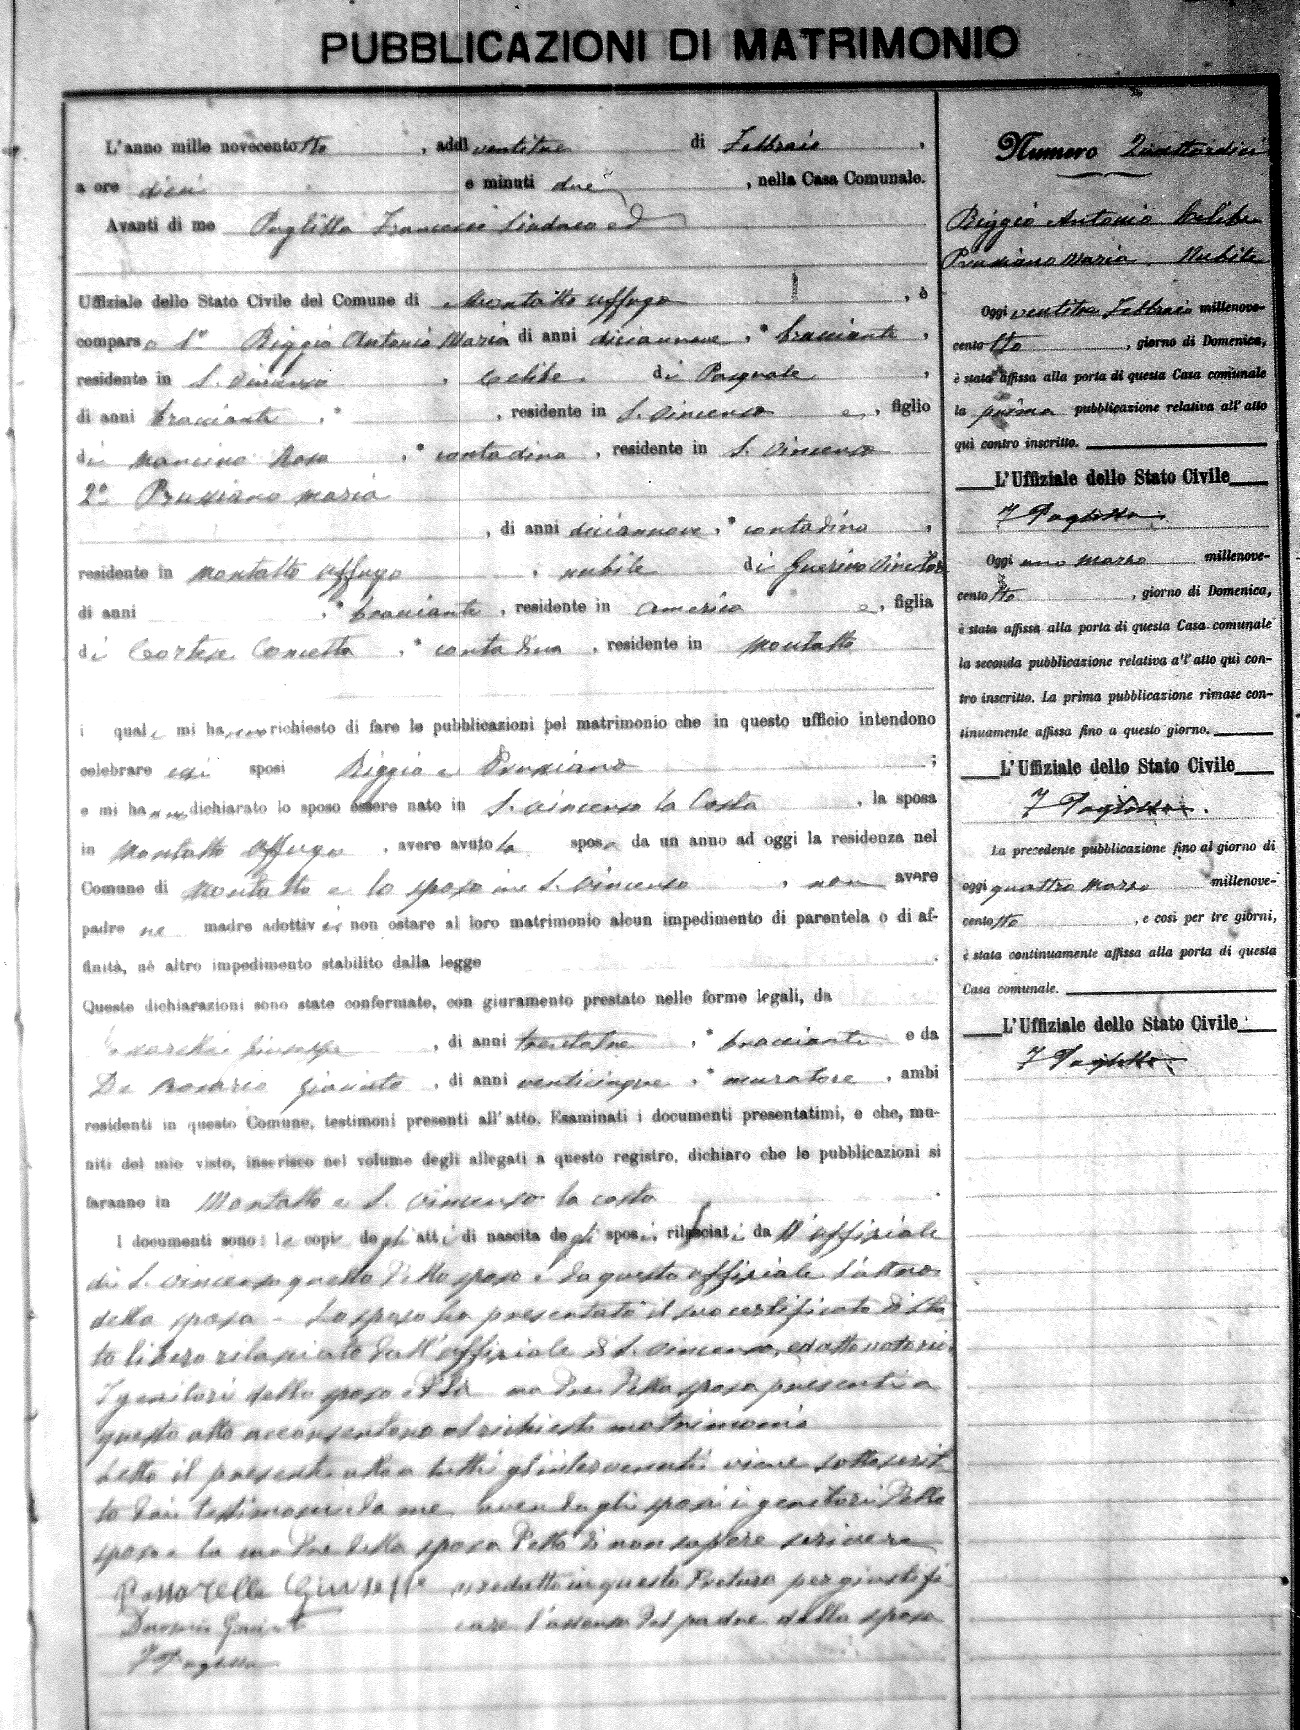 PUBBLICAZIONI DI MATRIMONIO
L'anno mille novecentotto, addì ventitre di Febbraio,
a ore dieci e minuti due, nella Casa Comunale.
Avanti di me Paglilla Francesco Sindaco ed
Uffiziale dello Stato Civile del Comune di Montalto Uffugo, è
comparso 1º Biggio Antonio Maria di anni diciannove, bracciante,
residente in S. Vincenzo, celibe di Pasquale,
di anni bracciante, residente in S. Vincenzo e, figlio
di Mancino Rosa, contadina, residente in S. Vincenzo
2º Prussiano Maria
, di anni diciannove, contadina,
residente in Montalto Uffugo, nubile di Guerino
di anni, bracciante, residente in America e, figlia
di Cortese Concetta, contadina, residente in Montalto
i quali mi hanno richiesto di fare le pubblicazioni pel matrimonio che in questo ufficio intendono
celebrare essi sposi Biggio e Prussiano;
e mi hanno dichiarato lo sposo essere nato in S. Vincenzo la Costa, la sposa
in Montalto Uffugo, avere avuto la sposa da un anno ad oggi la residenza nel
Comune di Montalto e lo sposo in S. Vincenzo, non avere
padre nè madre adottivi e non ostare al loro matrimonio alcun impedimento di parentela o di af-
finità, nè altro impedimento stabilito dalla legge.
Queste dichiarazioni sono state confermate, con giuramento prestato nelle forme legali, da
Giuseppe, di anni trentatre, bracciante e da
De Rosario Giacinto, di anni venticinque, muratore, ambi
residenti in questo Comune, testimoni presenti all'atto. Esaminati i documenti presentatimi, e che, mu-
niti del mio visto, inserisco nel volume degli allegati a questo registro, dichiaro che le pubblicazioni si
faranno in Montalto e S. Vincenzo la Costa.
I documenti sono: le copie degli atti di nascita degli sposi, rilasciati da l'uffiziale
di S. Vincenzo quello dello sposo e da questo uffiziale l'altro
della sposa - Lo sposo ha presentato il suo certificato di sta
to libero rilasciato dall'uffiziale di S. Vincenzo, ed atto notorio.
I genitori dello sposo e la madre della sposa presenti a
questo atto acconsentono al richiesto matrimonio
Letto il presente atto a tutti gl'intervenuti viene sottoscrit
to dai testimoni e da me, avendo gli sposi i genitori dello
sposo e la madre della sposa detto di non sapere scrivere
Giuseppe in questa Pretura per giustifi
care l'assenza del padre della sposa
F Paglilla
Numero Quattordici
Biggio Antonio Celibe
Prussiano Maria Nubile
Oggi ventitre Febbraio millenove-
centotto, giorno di Domenica,
è stata affissa alla porta di questa Casa comunale
la prima pubblicazione relativa all'atto
quì contro inscritto.
L'Uffiziale dello Stato Civile
F Paglilla
Oggi uno marzo millenove-
centotto, giorno di Domenica,
è stata affissa alla porta di questa Casa comunale
la seconda pubblicazione relativa all'atto quì con-
tro inscritto. La prima pubblicazione rimase con-
tinuamente affissa fino a questo giorno.
L'Uffiziale dello Stato Civile
F Paglilla
La precedente pubblicazione fino al giorno di
oggi quattro marzo millenove-
centotto, e così per tre giorni,
è stata continuamente affissa alla porta di questa
Casa comunale.
L'Uffiziale dello Stato Civile
F Paglilla